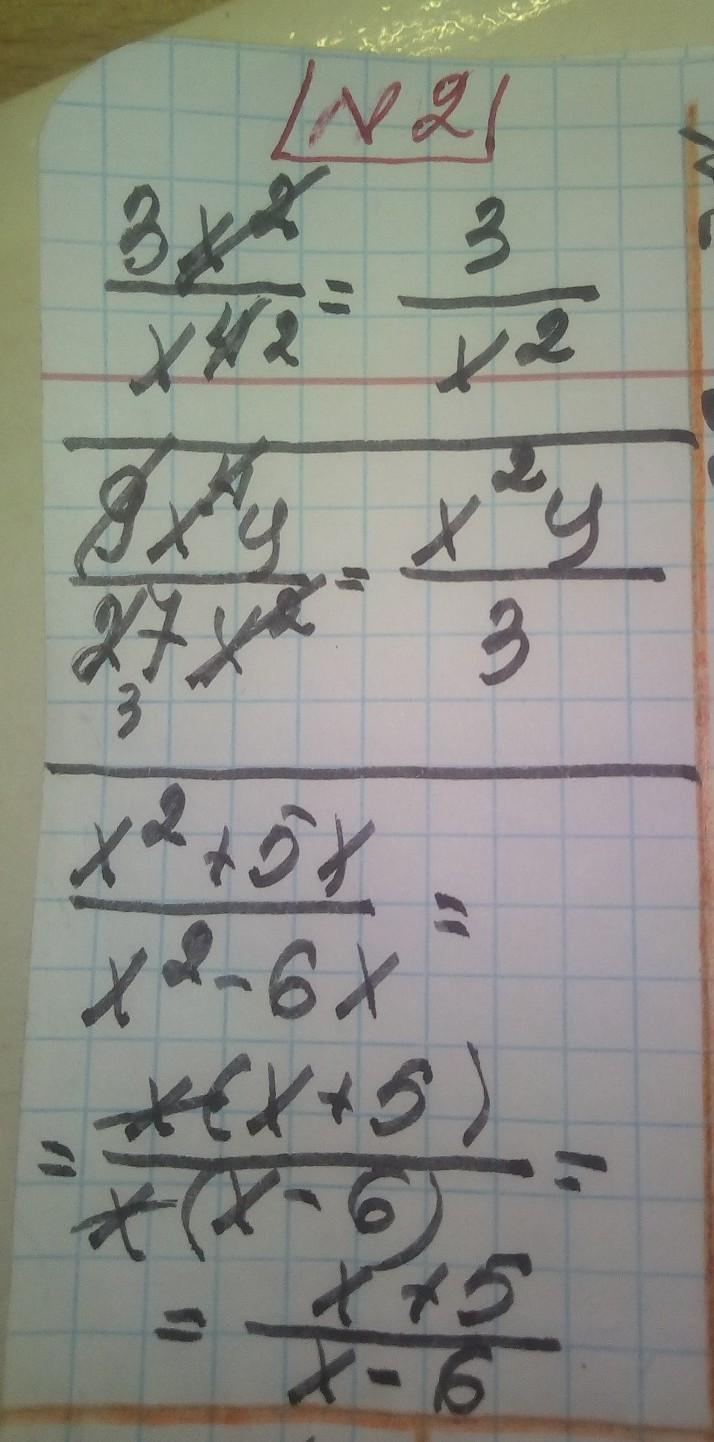 N 2
3x² / x⁴ 2 = 3 / x²
9x⁴y / 27x² 3 = x²y / 3
x² + 5x / x² - 6x =
= x(x + 5) / x(x - 6) =
= x + 5 / x - 6